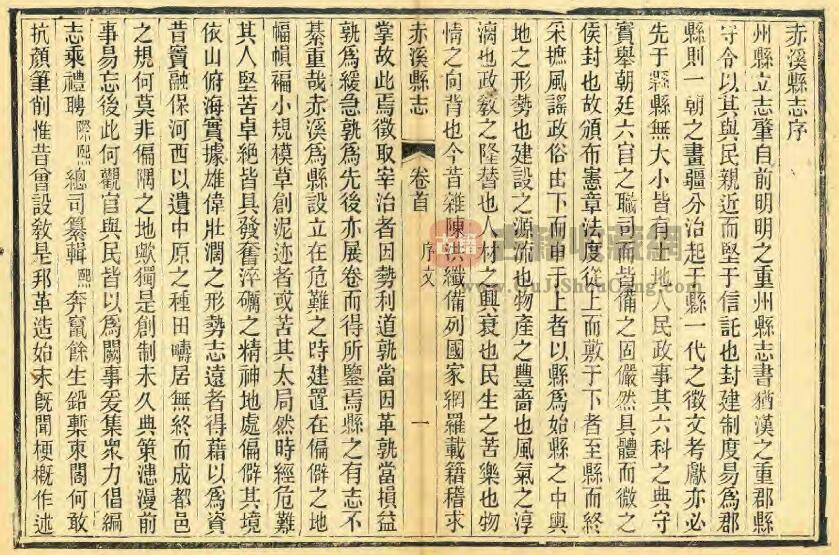 赤溪縣志序
州縣立志肇自前明明之重州縣志書猶漢之重郡縣
守令以其與民親近而堅于信託也封建制度易爲郡
縣則一朝之畫疆分治起于縣一代之徵文考獻亦必
先于縣縣無大小皆有土地人民政事其六科之典守
實舉朝廷六官之職司而皆備之固儼然具體而微之
侯封也故頒布憲章法度從上而敷于下者至縣而終
采摭風謠政俗由下而申于上者以縣爲始縣之中輿
地之形勢也建設之源流也物產之豐嗇也風氣之淳
漓也政教之隆替也人物之興衰也民生之苦樂也物
情之向背也今昔雜陳洪纖備列國家網羅載籍稽求
赤溪縣志
卷首
序文
一
掌故此焉徵取宰治者因勢利道孰當因革孰當損益
孰爲緩急孰爲先後亦展卷而得所鑒焉縣之有志不
綦重哉赤溪爲縣設立在危難之時建置在偏僻之地
幅幀褊小規模草創泥迹者或苦其太局然時經危難
其人堅苦卓絕皆具發奮淬礪之精神地處偏僻其境
依山俯海實據雄偉壯濶之形勢志遠者得藉以爲資
昔竇融保河西以遺中原之種田疇居無終而成都邑
之規何莫非偏隅之地歟獨是創制未久典策漶漫前
事易忘後此何觀官與民皆以爲闕事爰集衆力倡編
志乘禮聘際熙總司纂輯熙奔竄餘生鉛槧東閣何敢
抗顏筆削惟昔曾設敎是邦革造始末旣聞梗槪作述
古籍收藏網
www.GuJiShouCang.com